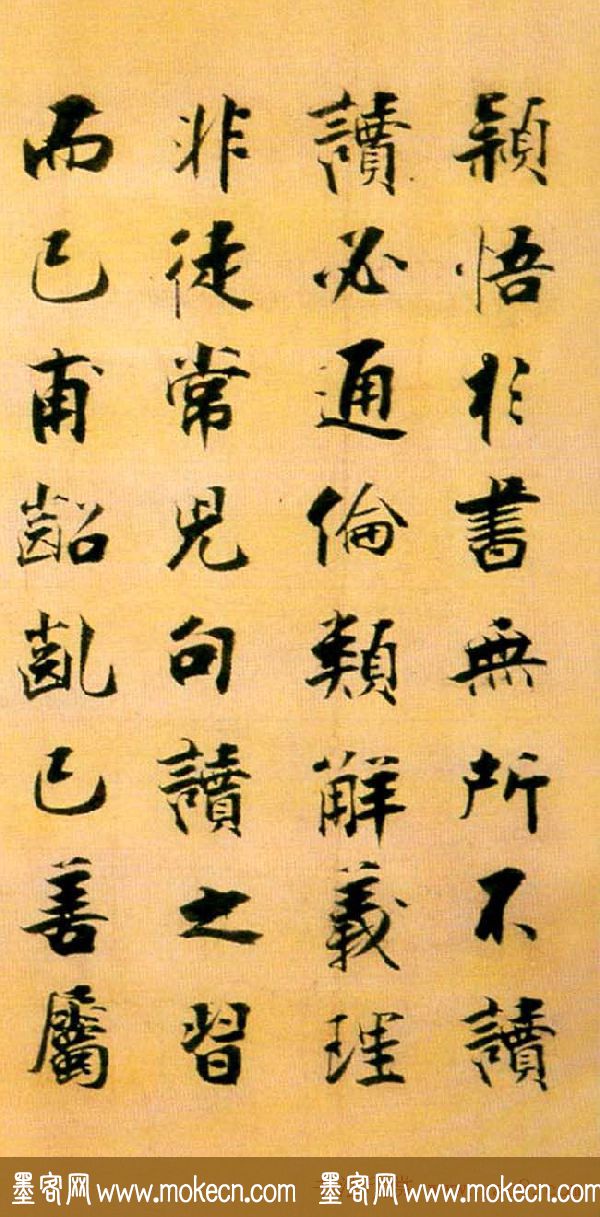 穎悟於書無所不讀
讀必通倫類解義理
非徒常兒句讀之習
而已甫齠亂已善屬
墨客网 www.mokecn.com 墨客网 www.mokecn.com